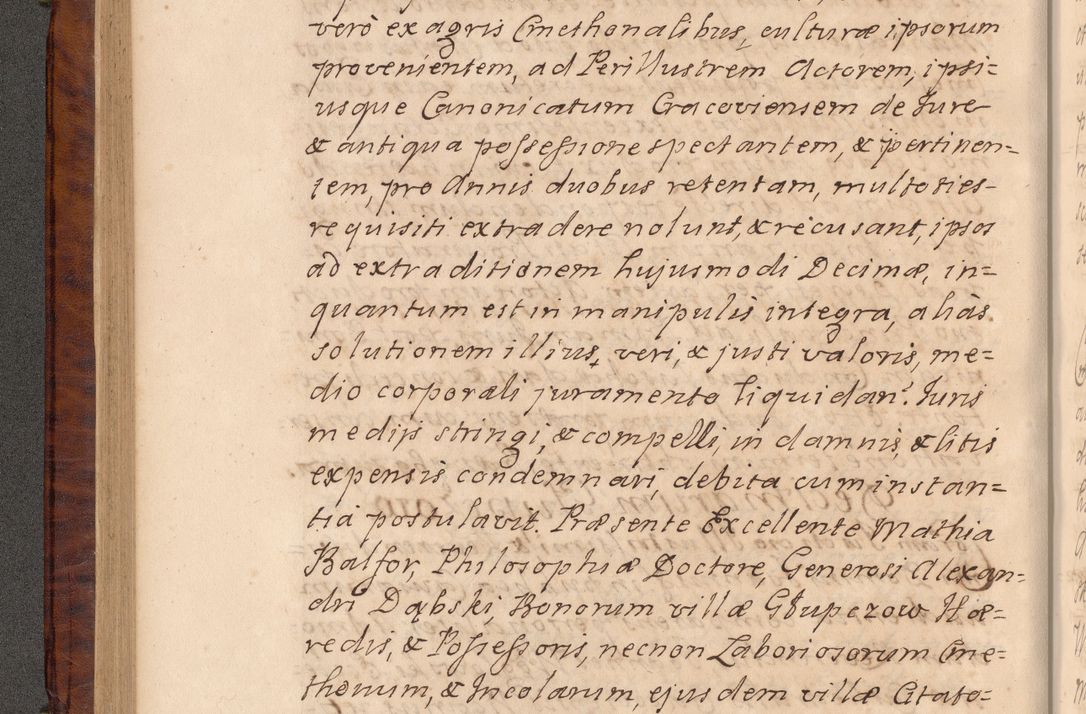 verò ex agris Cmethonalibus, culturæ ipsorum
provenientem, ad Perillustrem Actorem, ipsi=
usque Canonicatum Cracoviensem de Jure
& antiqua possessione spectantem, & pertinen=
tem, pro Annis duobus retentam, multoties
requisiti extradere nolunt, & recusant, ipsos
ad extraditionem hujusmodi Decimæ, in=
quantum est in manipulis integra, aliàs
solutionem illius, veri, & justi valoris, me=
dio corporali juramento liquidan: Juris
medijs stringi, & compelli, in damnis, & litis
expensis condemnari, debita cum instan=
tiâ postulavit. Præsente Excellente Mathia
Balfor, Philosophiæ Doctore, Generosi Alexan=
dri Dąbski, Bonorum villæ Głupczow Hæ=
redis, & Possessoris, necnon Laboriosorum Cme=
thonum, & Incolarum, ejusdem villæ Citato=